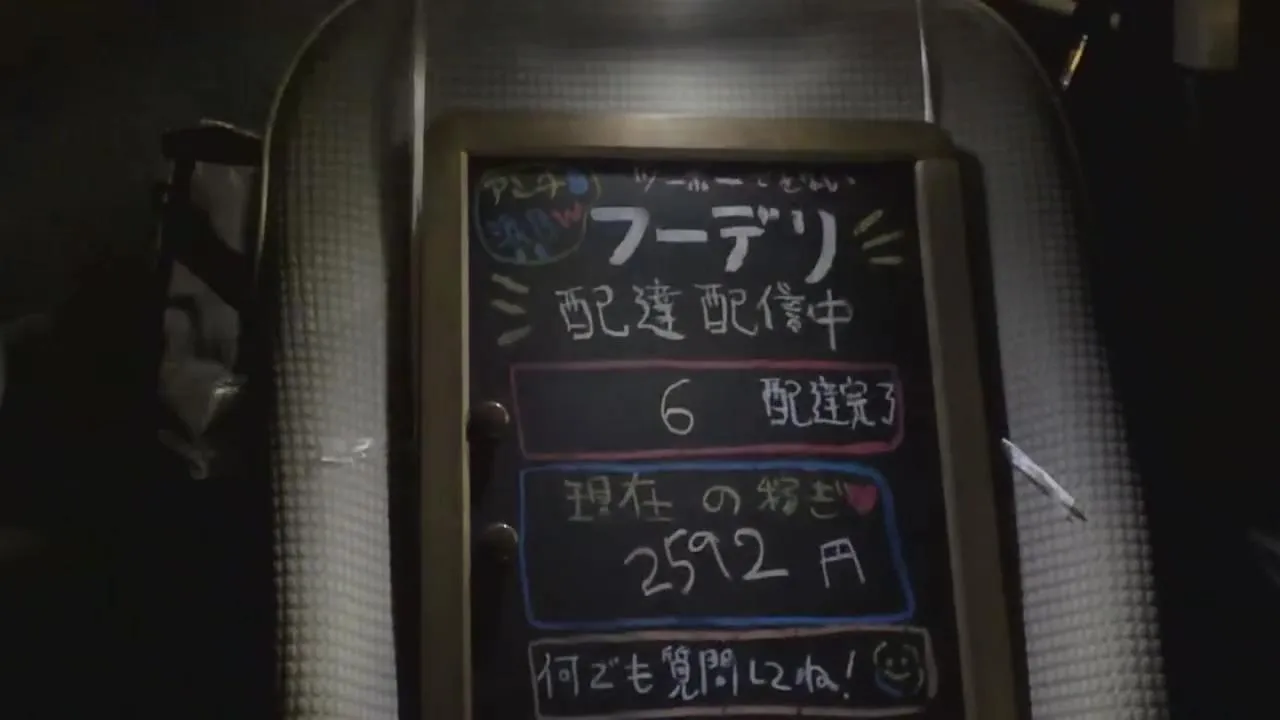 アンチ
フーデリ
配達配信中
6 配達完了
現在の稼ぎ
2592 円
何でも質問してね!